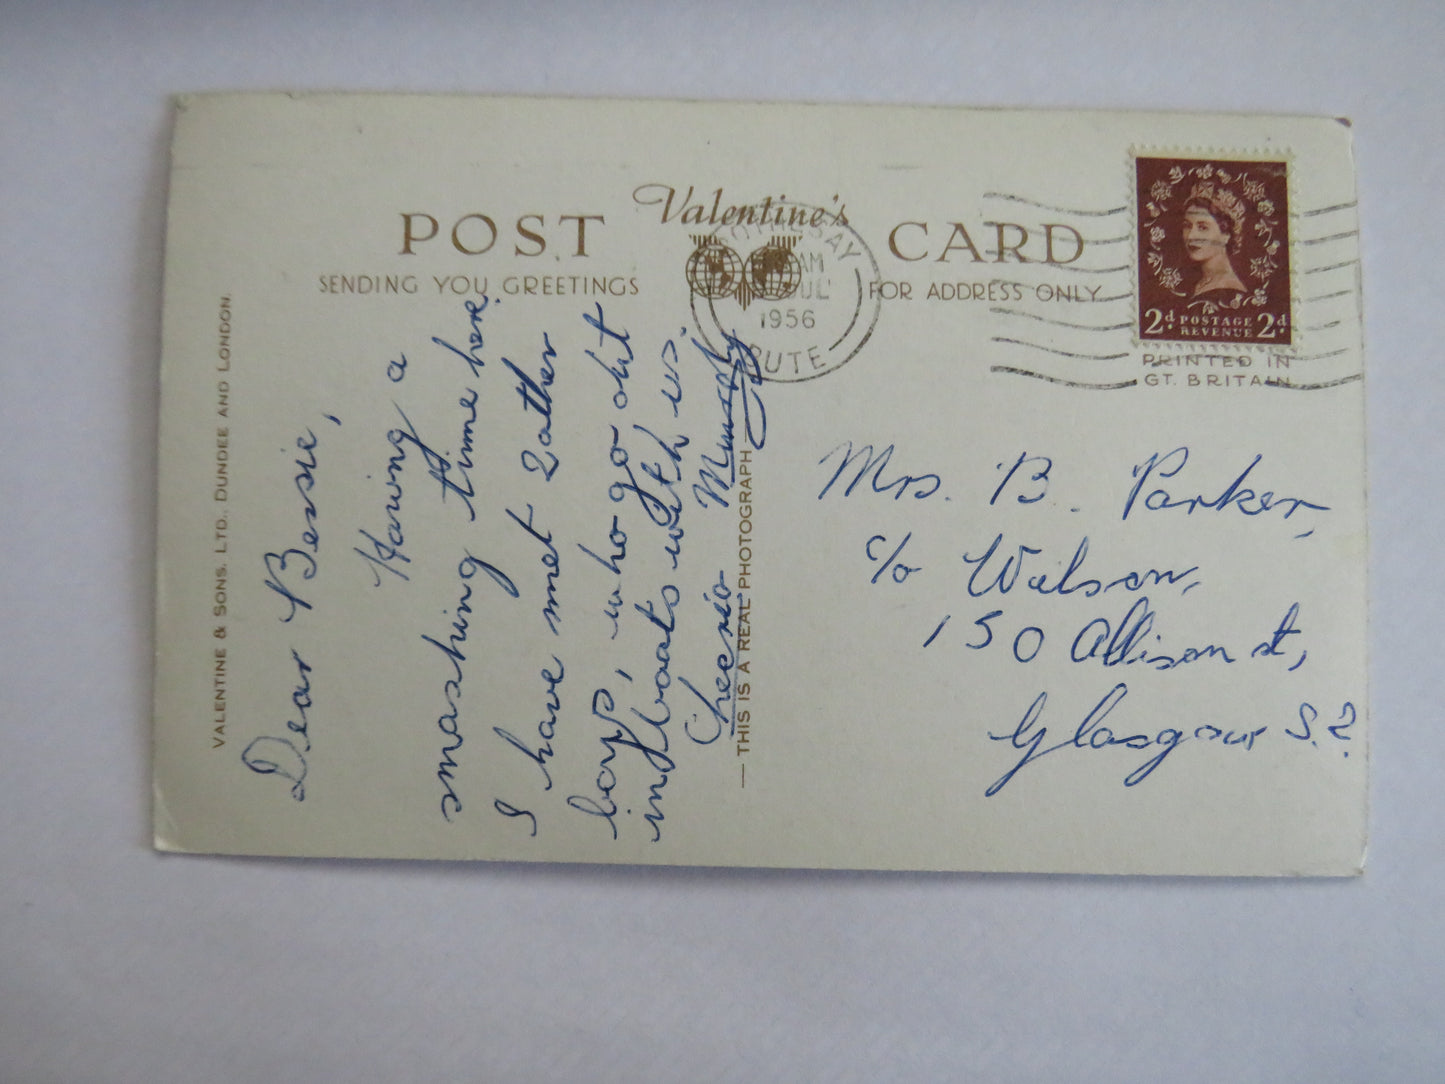 VALENTINE & SONS. LTD., DUNDEE AND LONDON.
POST Valentine's CARD
SENDING YOU GREETINGS
FOR ADDRESS ONLY
ROTHESAY
AM
JUL
1956
BUTE
2d POSTAGE REVENUE 2d
PRINTED IN
GT. BRITAIN
Dear Bessie,
Having a
smashing time here.
I have met 2 other
boys, who go out
in boats with us.
Cheerio
THIS IS A REAL PHOTOGRAPH
Mrs. B. Parker,
c/o Watson,
150 Allison st,
Glasgow S.2.